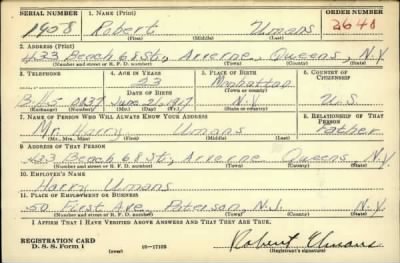 SERIAL NUMBER 1. NAME (Print) ORDER NUMBER
1908 Robert Umans 3640
(First) (Middle) (Last)
2. ADDRESS (Print)
423 Beach 68 St., Arverne, Queens, N.Y.
(Number and street or R. F. D. number) (Town) (County) (State)
3. TELEPHONE 4. AGE IN YEARS 5. PLACE OF BIRTH 6. COUNTRY OF CITIZENSHIP
23 Manhattan
DATE OF BIRTH (Town or county)
0437 June 21, 1917 N.Y. U.S.
(Exchange) (Number) (Mo.) (Day) (Yr.) (State or country)
7. NAME OF PERSON WHO WILL ALWAYS KNOW YOUR ADDRESS 8. RELATIONSHIP OF THAT PERSON
Mr. Harry Umans Father
(Mr., Mrs., Miss) (First) (Middle) (Last)
9. ADDRESS OF THAT PERSON
423 Beach 68 St., Arverne Queens, N.Y.
(Number and street or R. F. D. number) (Town) (County) (State)
10. EMPLOYER'S NAME
Harry Umans
11. PLACE OF EMPLOYMENT OR BUSINESS
50 First Ave. Paterson N.J. N.Y.
(Number and street or R. F. D. number) (Town) (County) (State)
I AFFIRM THAT I HAVE VERIFIED ABOVE ANSWERS AND THAT THEY ARE TRUE.
REGISTRATION CARD
D. S. S. Form 1 (over) 16-17105 Robert Umans
(Registrant's signature)